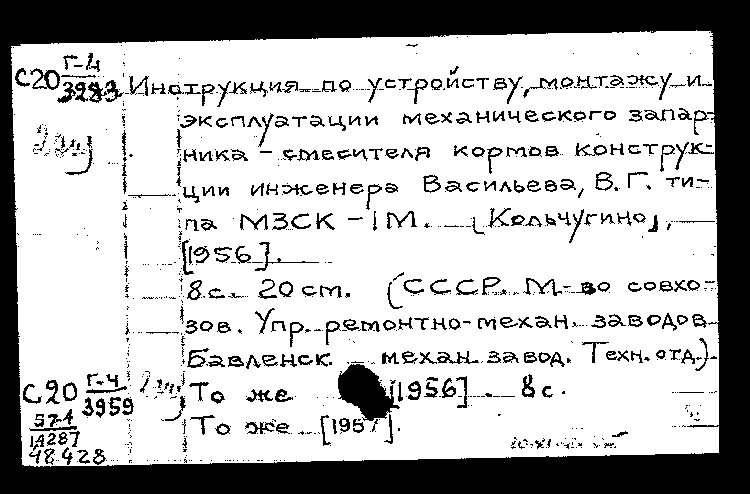 С20 Г-4
3283
Инструкция по устройству, монтажу и
эксплуатации механического запар-
ника - смесителя кормов конструк-
ции инженера Васильева, В. Г. ти-
па МЗСК - 1М. [Кольчугино],
[1956].
8 с. 20 см. (СССР. М-во совхо-
зов. Упр. ремонтно-механ. заводов.
Бавленск механ. завод. Техн. отд.).
С20 Г-4
3959
То же [1956]. 8 с.
То же [1957].
574
14287
48428